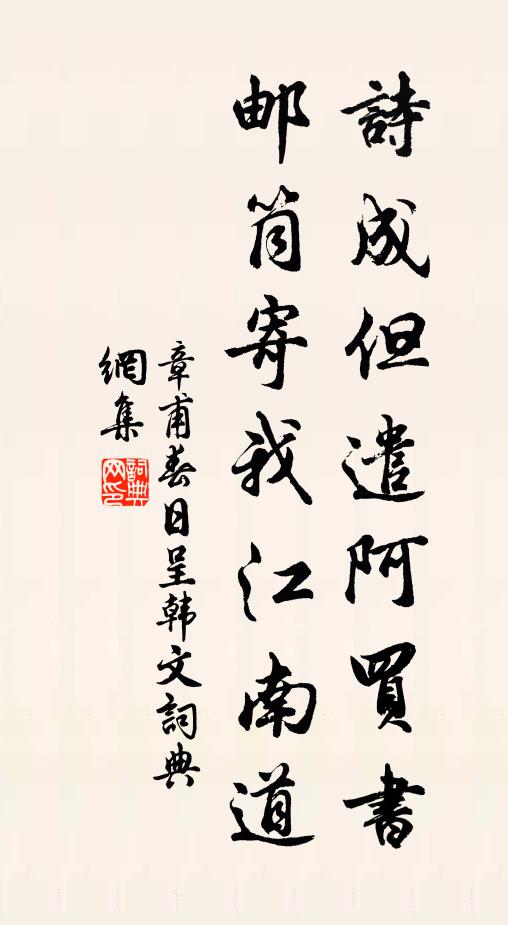 詩成但遣阿買書
邮筒寄我江南道
章甫春日呈韩文詞典
網集
詞典网印